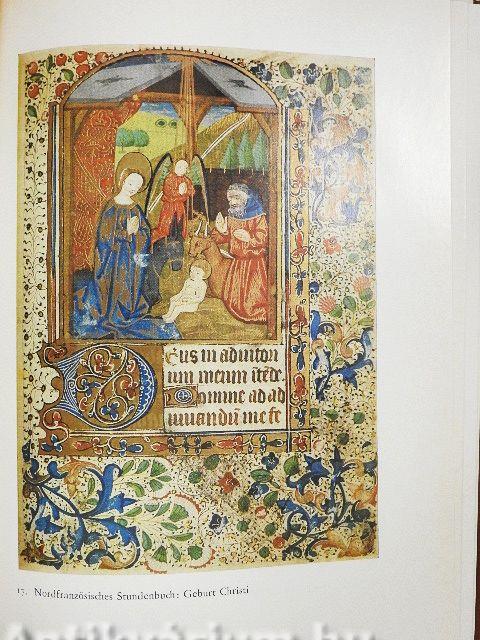 Deus in adiutori
um meum intẽde
Domine ad ad
iuuandũ me fe
17. Nordfranzösisches Stundenbuch: Geburt Christi
Antikvarium.hu